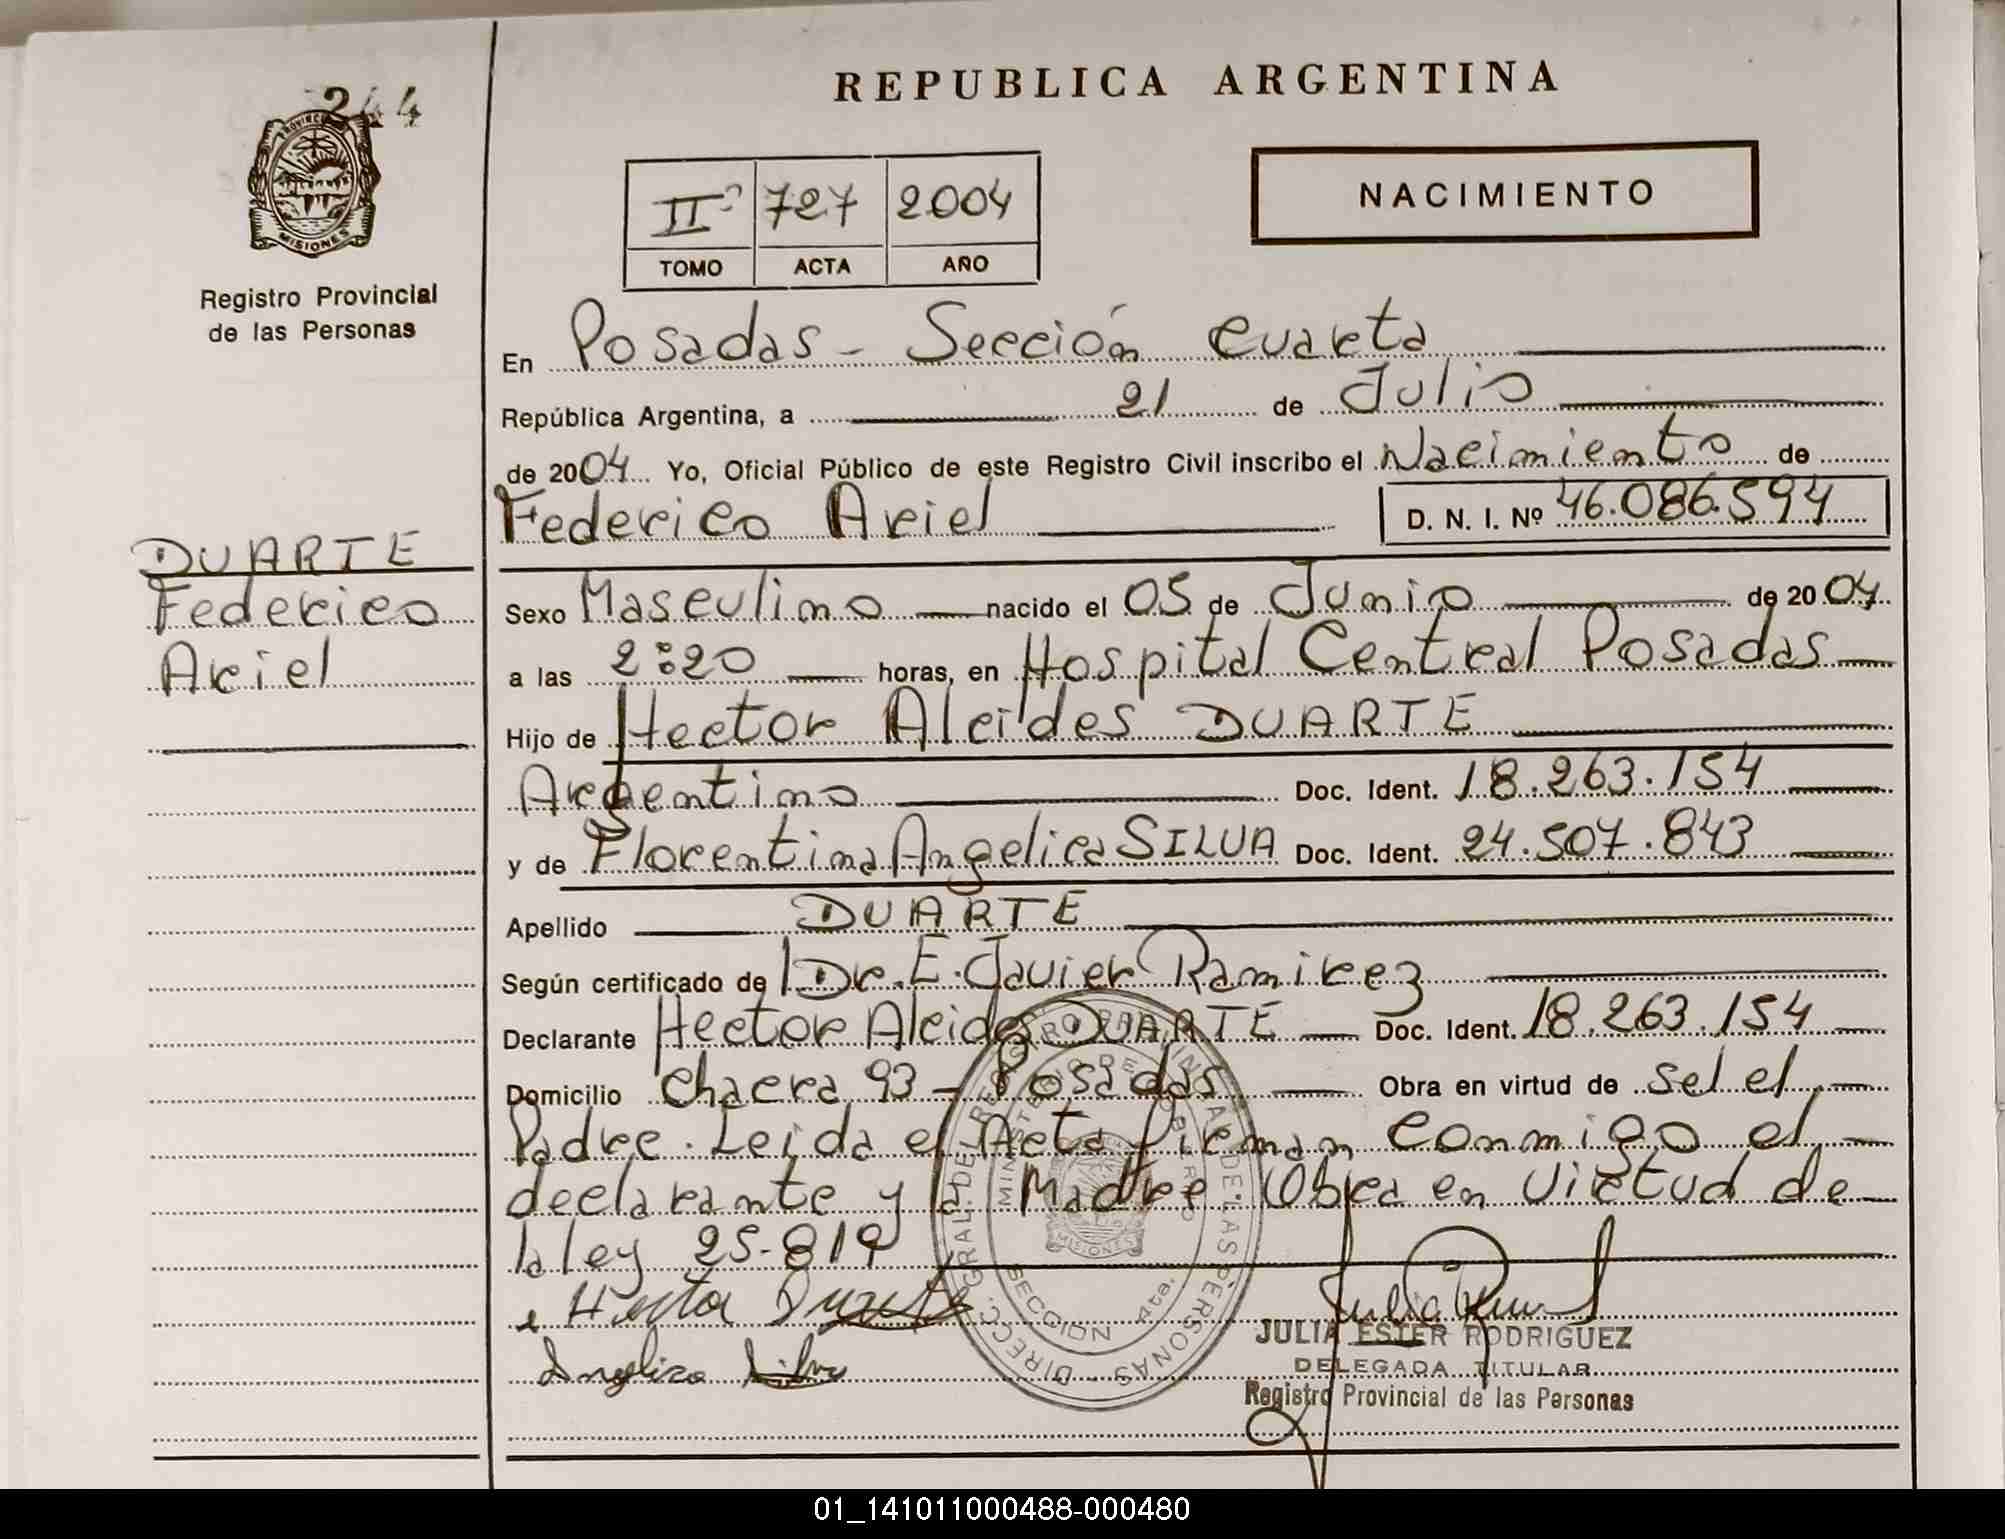 REPUBLICA ARGENTINA
244
PROVINCIA
MISIONES
Registro Provincial
de las Personas
IIº 727 2004
TOMO ACTA AÑO
NACIMIENTO
En Posadas - Sección Cuarta
República Argentina, a 21 de Julio
de 2004 Yo, Oficial Público de este Registro Civil inscribo el Nacimiento de
Federico Ariel D. N. I. Nº 46.086.594
DUARTE
Federico
Ariel
Sexo Masculino nacido el 05 de Junio de 2004
a las 2:20 horas, en Hospital Central Posadas
Hijo de Hector Alcides DUARTE
Argentino Doc. Ident. 18.263.154
y de Florentina Angelica SILVA Doc. Ident. 24.507.843
Apellido DUARTE
Según certificado de Dr. E. Javier Ramirez
Declarante Hector Alcides DUARTE Doc. Ident. 18.263.154
Domicilio Chacra 93 - Posadas Obra en virtud de sel el
Padre. Leida el Acta firman conmigo el
declarante y la Madre Obra en Virtud de
la ley 25-819
Hector Duarte
Angelica Silva
DIRECC. GRAL. DEL REGISTRO PROVINCIAL DE LAS PERSONAS
MINISTERIO DE GOBIERNO
MISIONES
SECCION 4ta.
JULIA ESTER RODRIGUEZ
DELEGADA TITULAR
Registro Provincial de las Personas
01_141011000488-000480